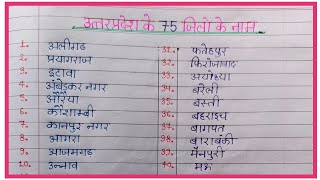 उत्तरप्रदेश के 75 जिलों के नाम
1. अलीगढ
2. प्रयागराज
3. इटावा
4. अंबेडकर नगर
5. औरैया
6. कौशाम्बी
7. कानपुर नगर
8. आगरा
9. आजमगढ
10. उन्नाव
31. फतेहपुर
32. फिरोजाबाद
33. अयोध्या
34. बरेली
35. बस्ती
36. बहराइच
37. बागपत
38. बाराबंकी
39. मैनपुरी
40. मऊ